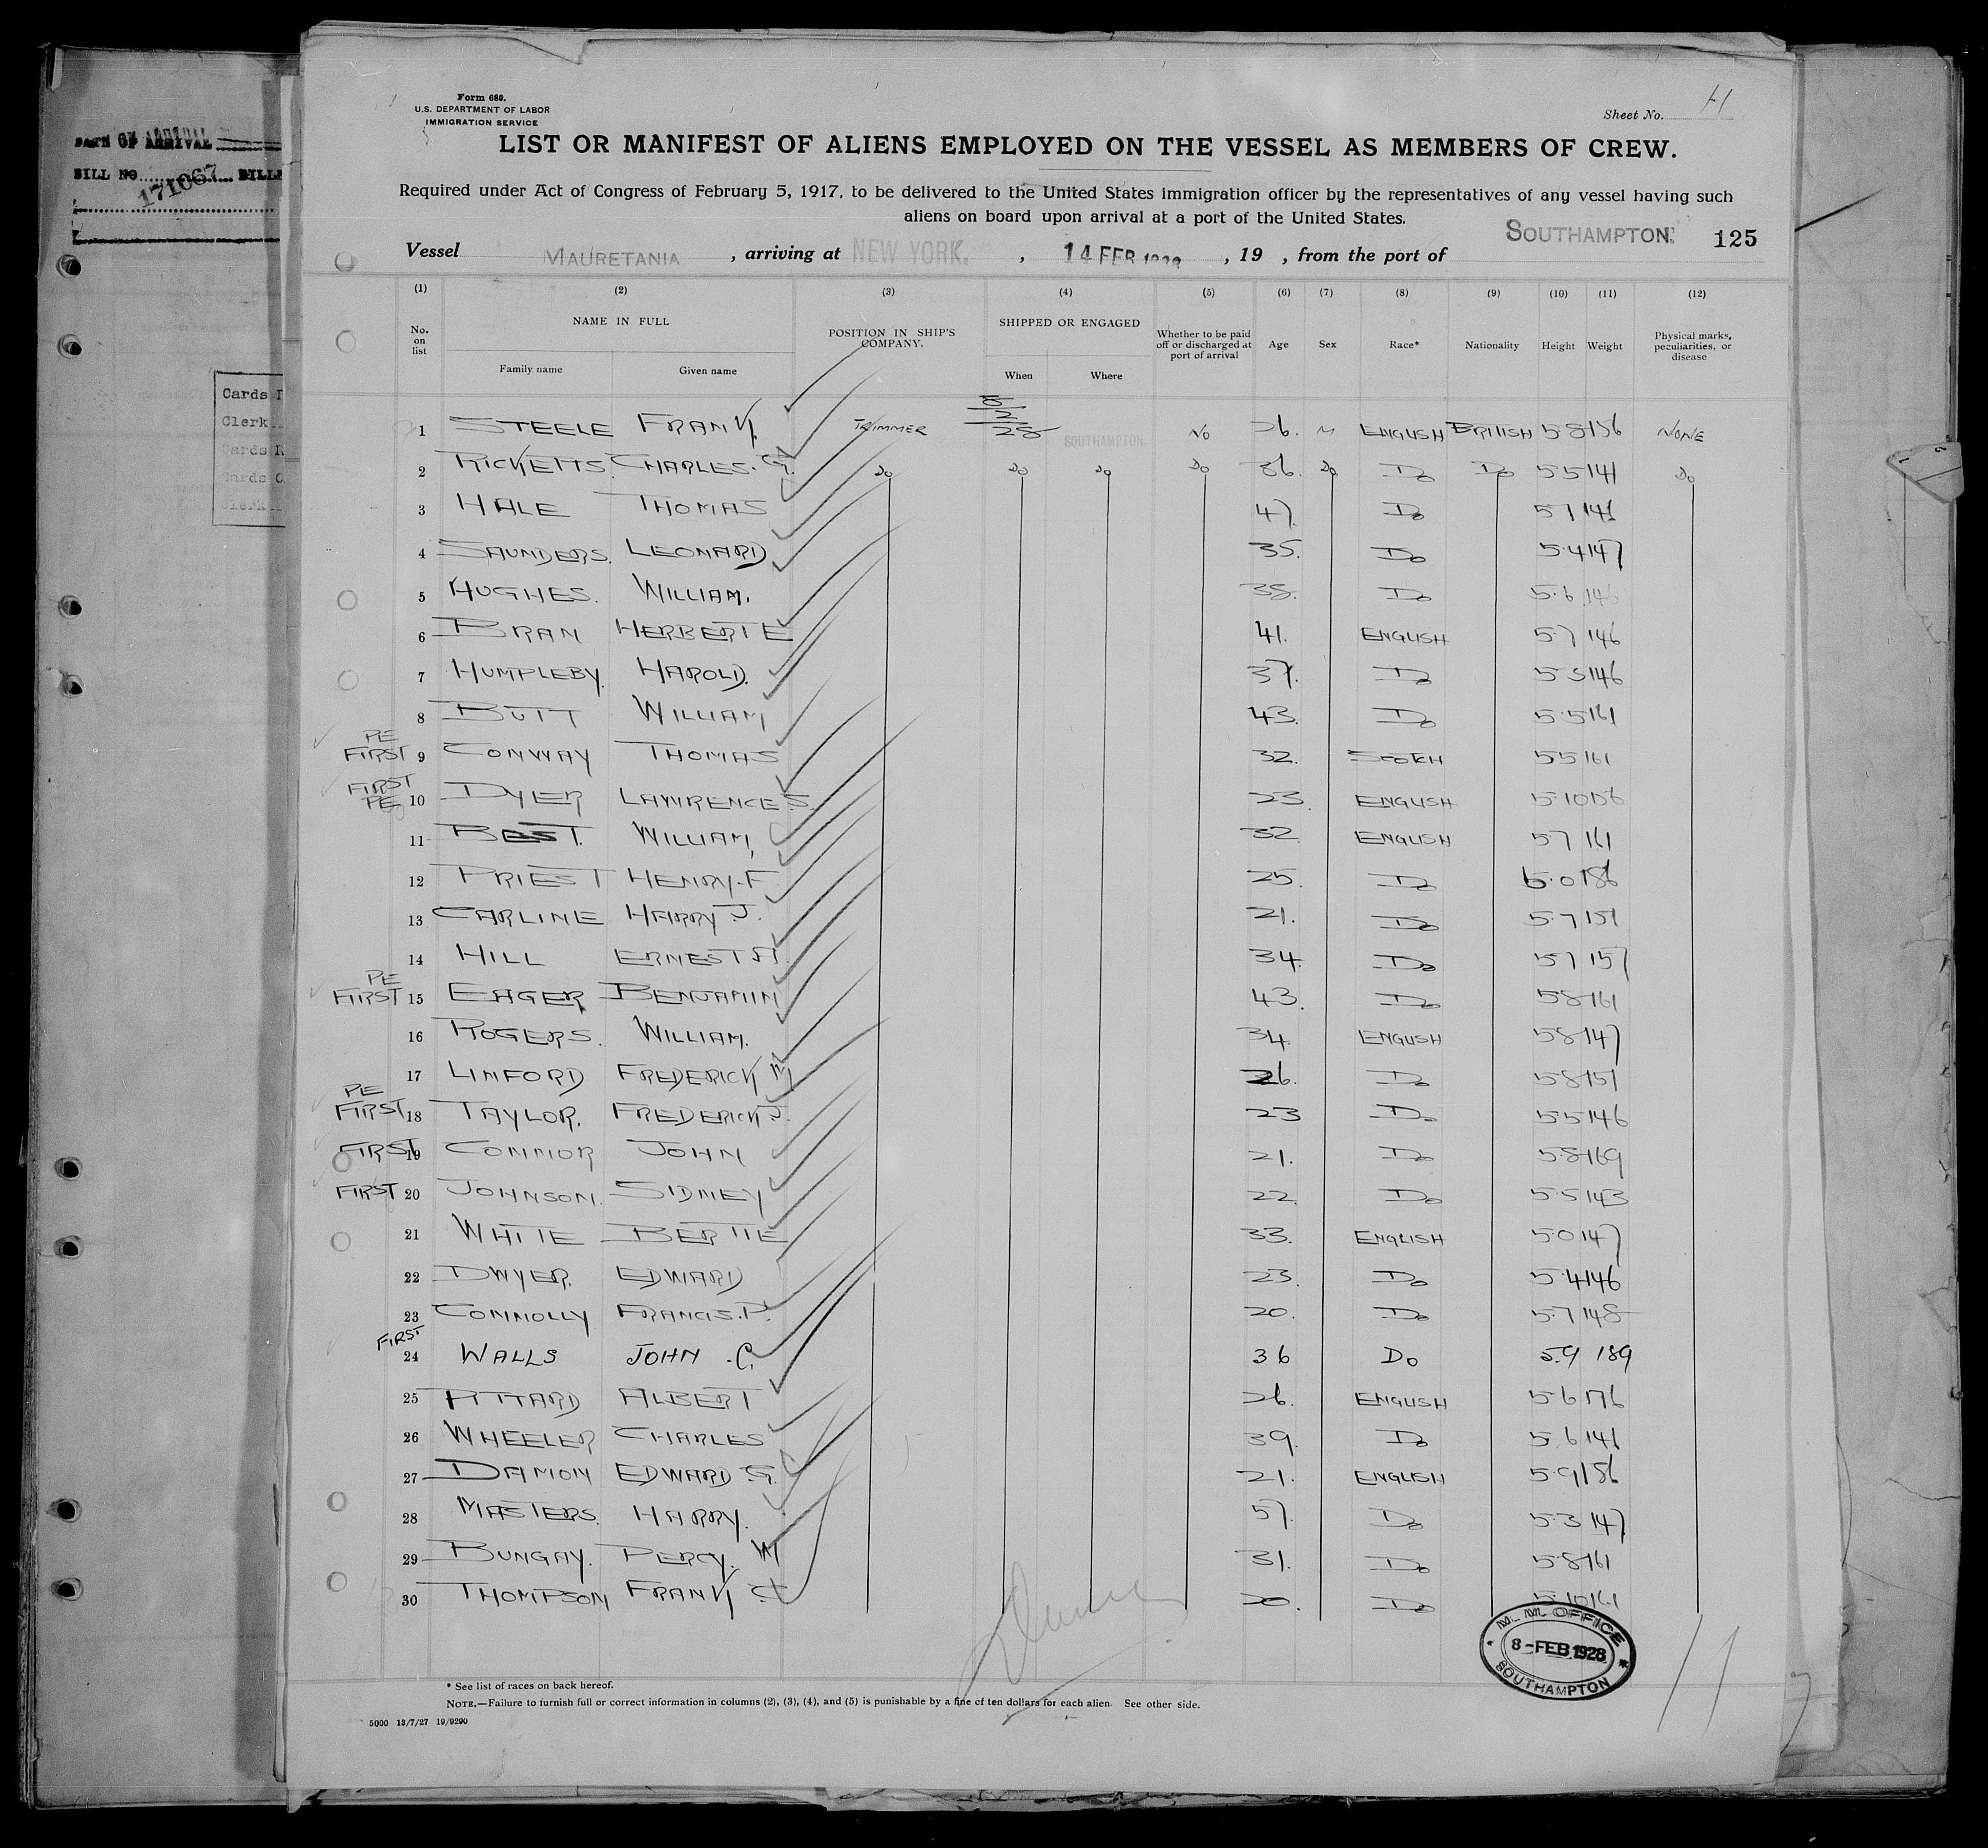 DATE OF ARRIVAL
BILL NO. 171067 BILL
Cards
Clerk
Cards R
Cards C
Clerk
Form 680.
U.S. DEPARTMENT OF LABOR
IMMIGRATION SERVICE
Sheet No. H
LIST OR MANIFEST OF ALIENS EMPLOYED ON THE VESSEL AS MEMBERS OF CREW.
Required under Act of Congress of February 5, 1917, to be delivered to the United States immigration officer by the representatives of any vessel having such
aliens on board upon arrival at a port of the United States.
Vessel MAURETANIA , arriving at NEW YORK. , 14 FEB 1928 , 19 , from the port of SOUTHAMPTON. 125
(1) (2) (3) (4) (5) (6) (7) (8) (9) (10) (11) (12)
No. on list NAME IN FULL Family name Given name POSITION IN SHIP'S COMPANY. SHIPPED OR ENGAGED When Where Whether to be paid off or discharged at port of arrival Age Sex Race* Nationality Height Weight Physical marks, peculiarities, or disease
1 STEELE FRANK. TRIMMER 8/2/28 SOUTHAMPTON. NO 26. M ENGLISH BRITISH 5 8 156 NONE
2 RICKETTS. CHARLES. G. Do Do Do Do 36. Do Do Do 5 5 141 Do
3 HALE THOMAS 47. Do 5 7 146
4 SAUNDERS. LEONARD 35. Do 5.4 147
5 HUGHES. WILLIAM. 38. Do 5.6 146
6 BRAN HERBERT E 41. ENGLISH 5.7 146
7 HUMPLEBY. HAROLD. 37. Do 5 5 146
8 BUTT WILLIAM 43. Do 5.5 161
PE FIRST 9 CONWAY THOMAS 32. SCOTCH 5 5 161
FIRST PE 10 DYER LAWRENCE S. 23. ENGLISH 5.10 156
11 BEST. WILLIAM, 32 ENGLISH 5 7 161
12 PRIEST HENRY. F. 25. Do 6.0 186
13 CARLINE HARRY J. 21. Do 5.7 151
14 HILL ERNEST A. 34. Do 5 7 157
PE FIRST 15 EAGER BENJAMIN 43. Do 5 8 161
16 ROGERS. WILLIAM. 34. ENGLISH 5 8 147
17 LINFORD FREDERICK M 26. Do 5 8 151
PE FIRST 18 TAYLOR. FREDERICK J. 23 Do 5 5 146
FIRST 19 CONNOR JOHN 21. Do 5.8 169
FIRST 20 JOHNSON. SIDNEY 22. Do 5.5 143
21 WHITE BERTIE 33. ENGLISH 5.0 147
22 DWYER. EDWARD 23. Do 5.4 146
23 CONNOLLY FRANCIS. P. 20. Do 5.7 148
FIRST 24 WALLS JOHN .C. 36 Do 5.9 189
25 ATTARD ALBERT 26. ENGLISH 5.6 176
26 WHEELER CHARLES 39. Do 5.6 146
27 DAMON EDWARD G. 21. ENGLISH 5.9 186
28 MASTERS. HARRY. 57. Do 5.3 147
29 BUNGAY. PERCY. W 31. Do 5.8 161
30 THOMPSON FRANK C 20. Do 5.10 161
M. M. OFFICE
8 - FEB 1928
SOUTHAMPTON
* See list of races on back hereof.
NOTE.—Failure to furnish full or correct information in columns (2), (3), (4), and (5) is punishable by a fine of ten dollars for each alien. See other side.
5000 13/7/27 19/9290